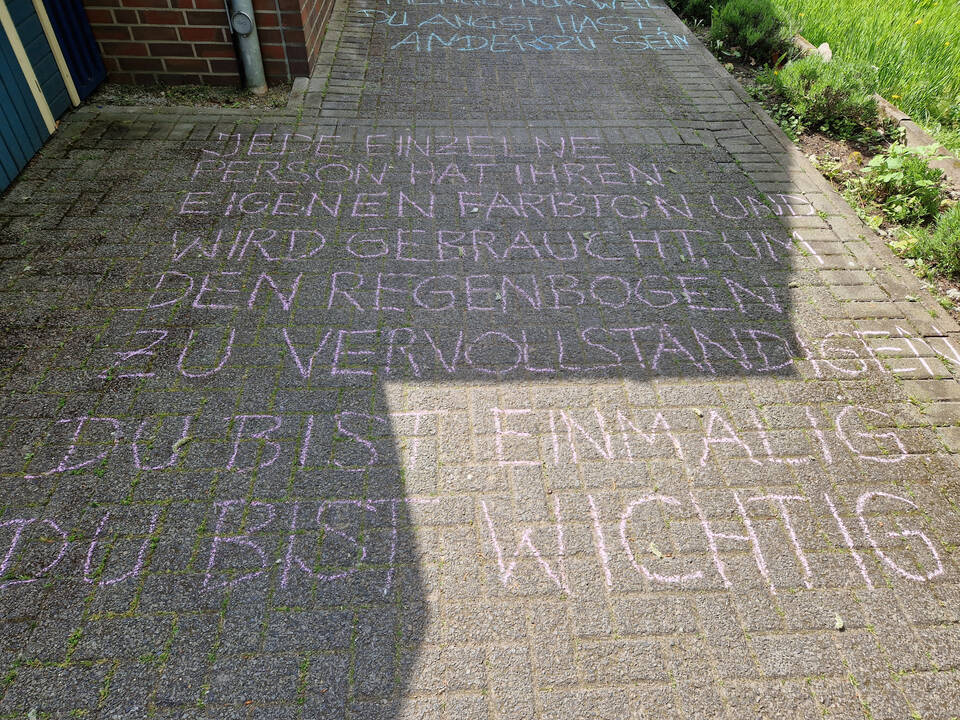 NUR WEIL
DU ANGST HAST
ANDERS ZU SEIN
JEDE EINZELNE
PERSON HAT IHREN
EIGENEN FARBTON UND
WIRD GEBRAUCHT, UM
DEN REGENBOGEN
ZU VERVOLLSTÄNDIGEN
DU BIST EINMALIG
DU BIST WICHTIG